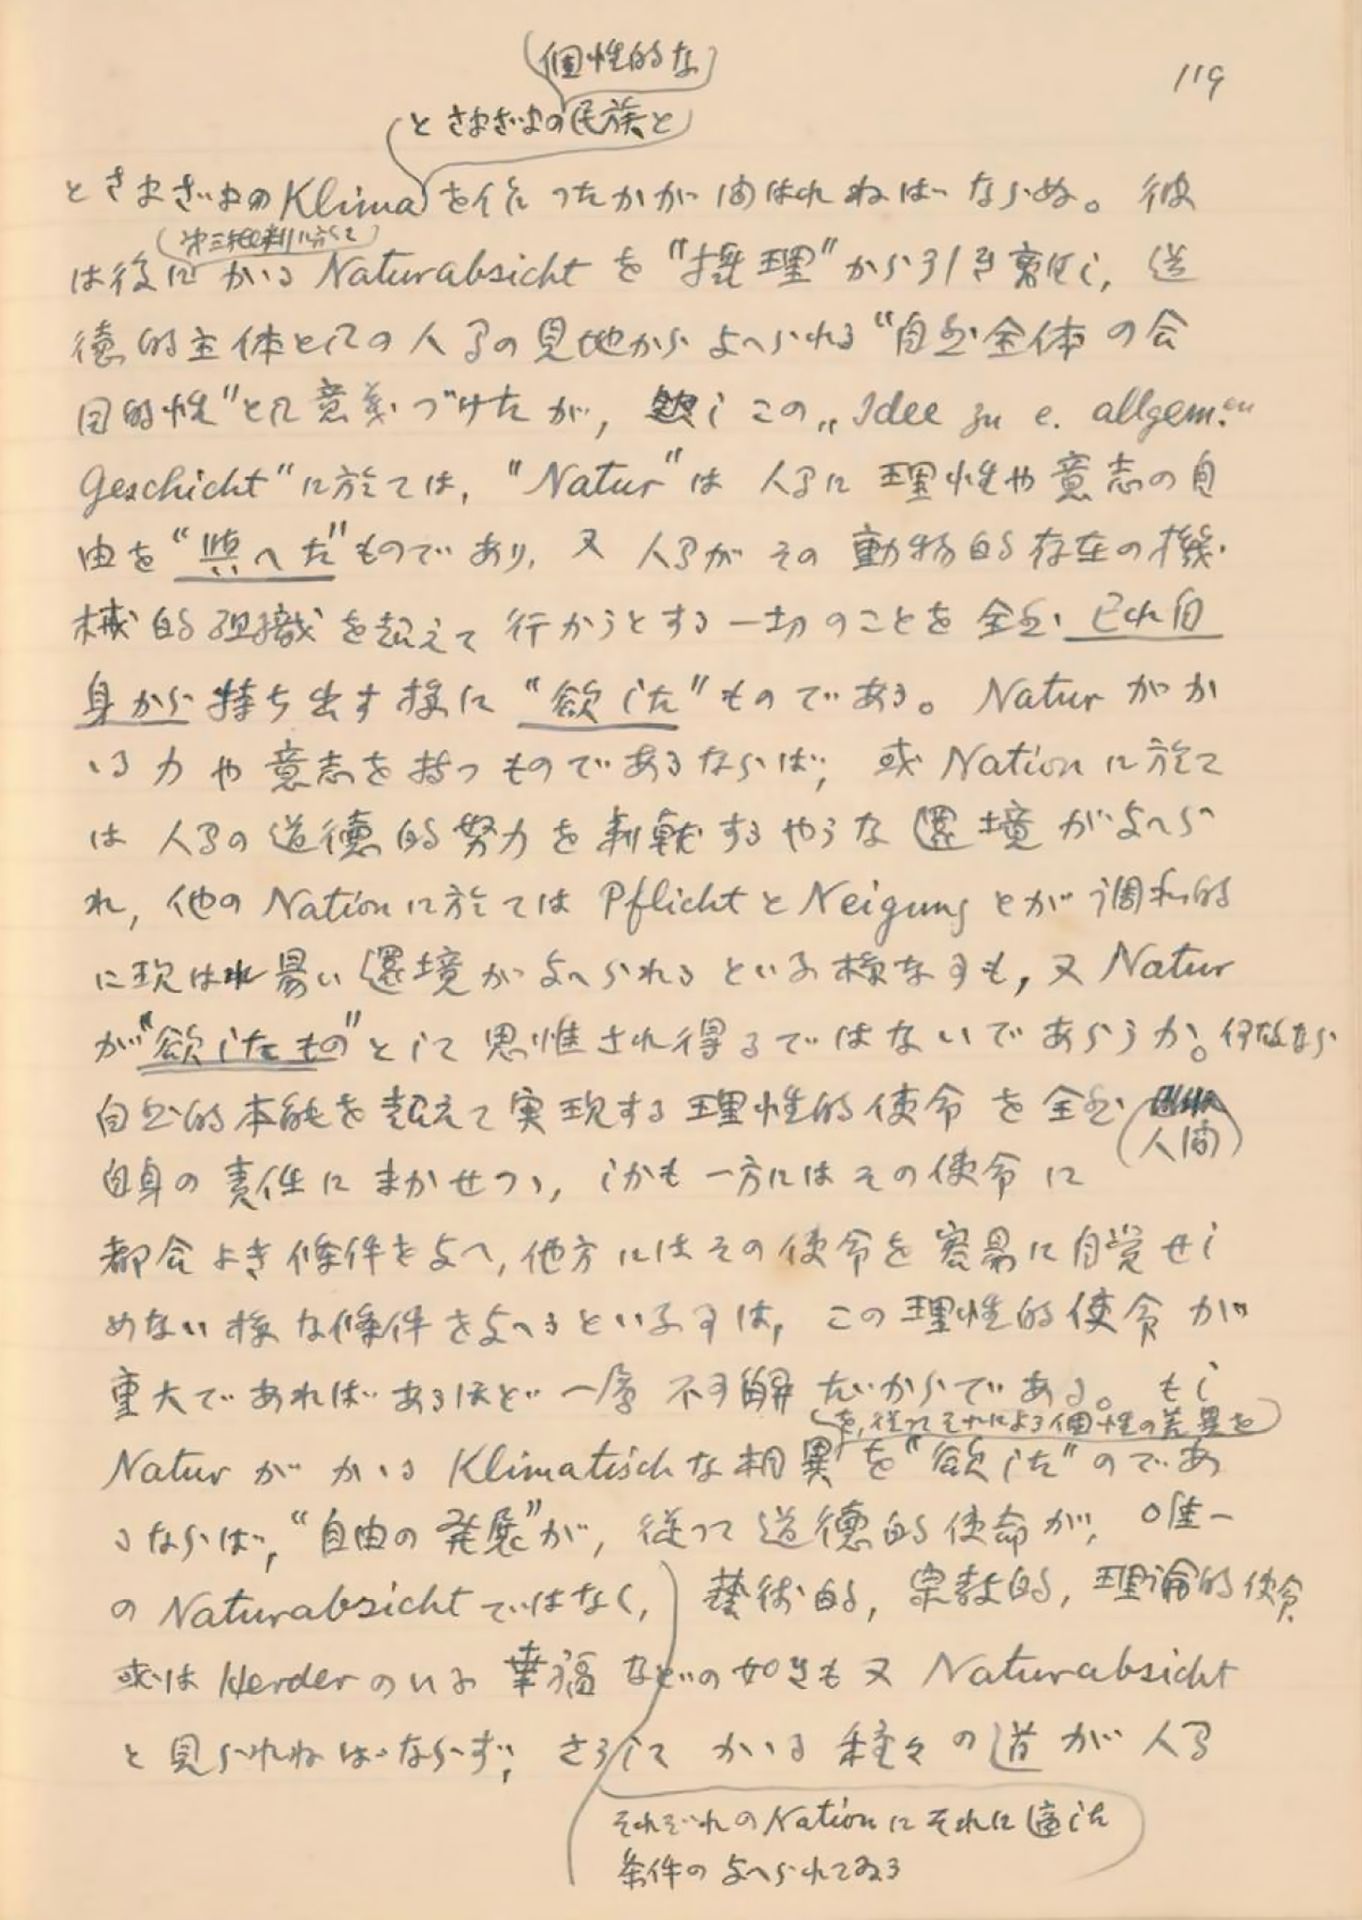 119
(個性的な)
(とさまざまの民族と)
とさまざまのKlimaを作ったかが問はれねばならぬ。彼
(第三批判に於て)
は後にかゝるNaturabsichtを"摂理"から引き離し, 道
徳的主体としての人間の見地から与へられる"自然全体の合
目的性"として意義づけたが, 然しこの„Idee zu e. allgem.en
Geschicht“に於ては, "Natur"は人間に理性や意志の自
由を"與へた"ものであり, 又人間がその動物的存在の機
械的組織を超えて行かうとする一切のことを全然己れ自
身から持ち出す様に"欲した"ものである。Naturがか
ゝる力や意志を持つものであるならば, 或Nationに於て
は人間の道徳的努力を刺戟するやうな環境が与へら
れ, 他のNationに於てはPflichtとNeigungとが調和的
に現はれ易い環境が与へられるといふ様な事も, 又Natur
が"欲したもの"として思惟され得るではないであらうか。何故なら
自然的本能を超えて実現する理性的使命を全然
(人間)
自身の責任にまかせつゝ, しかも一方にはその使命に
都合よき條件を与へ, 他方にはその使命を容易に自覚せし
めない様な條件を与へるといふ事は, この理性的使命が
重大であればあるほど一層不可解だからである。もし
(を, 従ってそれによる個性の差異を)
NaturがかゝるKlimatischな相異を"欲した"のであ
るならば, "自由の発展"が, 従って道徳的使命が, 唯一
のNaturabsichtではなく, 藝術的, 宗教的, 理論的使命
或はHerderのいふ幸福などの如きも又Naturabsicht
と見られねばならず, さうしてかゝる種々の道が人間
それぞれのNationにそれに適した
条件の与へられてゐる